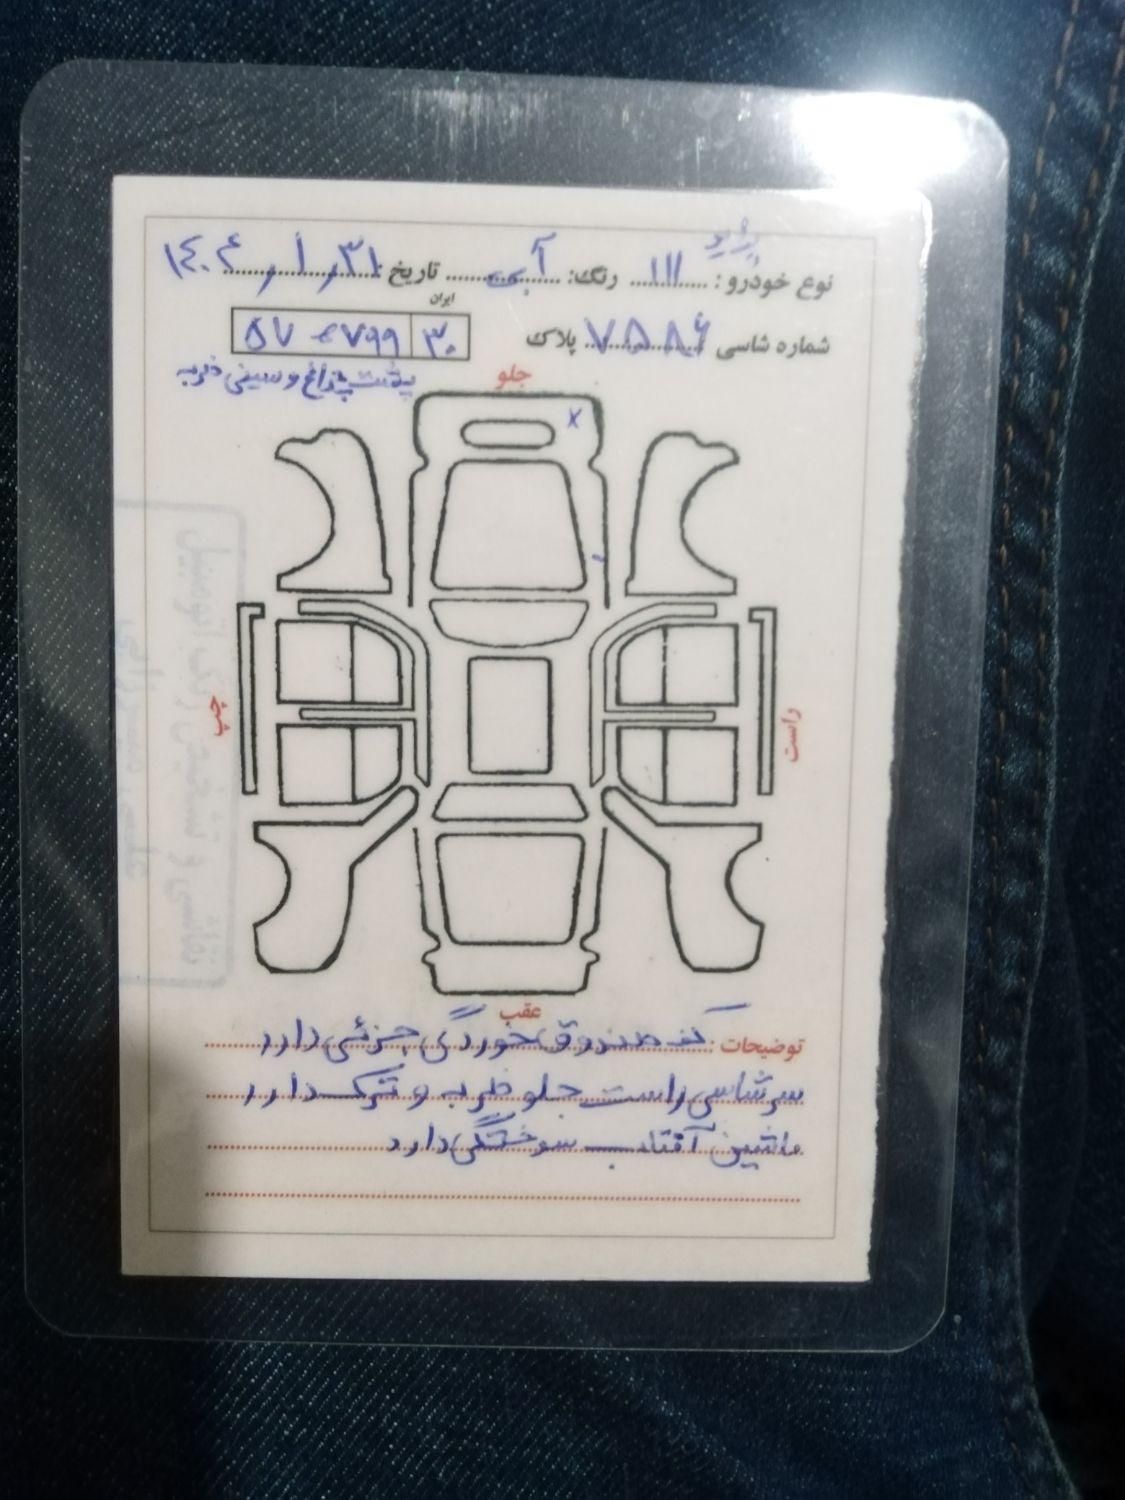 نوع خودرو: پراید ۱۱۱ رنگ: آبی تاریخ: ۱۴۰۴/۱/۳۱
ایران
شماره شاسی ۷۵۸۶ پلاک ۳۰ ۷۹۹ ۵۷
پشت چراغ و سینی ضربه
جلو
چپ
راست
عقب
توضیحات: کف صندوق خوردگی جزئی دارد
سرشاسی راست جلو ضربه و ترک دارد
ماشین آفتاب سوختگی دارد